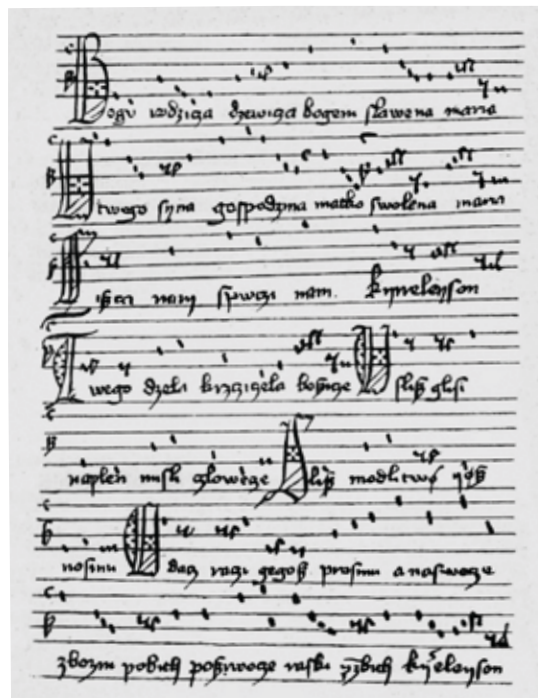 Bogu rodzicza dzewicza bogem slawena maria
twego syna gospodzina matko swolena maria
siszczi nam spwczi nam kyrieleyson
Twego dzela krzcziczela bozicze Uslisz glosi
naplen misli czlowecze Slisz modlitwo yosz
nosimi Oddacz raczi gegosz prosimi a naswecze
zbozni pobith poszywocze raski przebith kyrieleyson